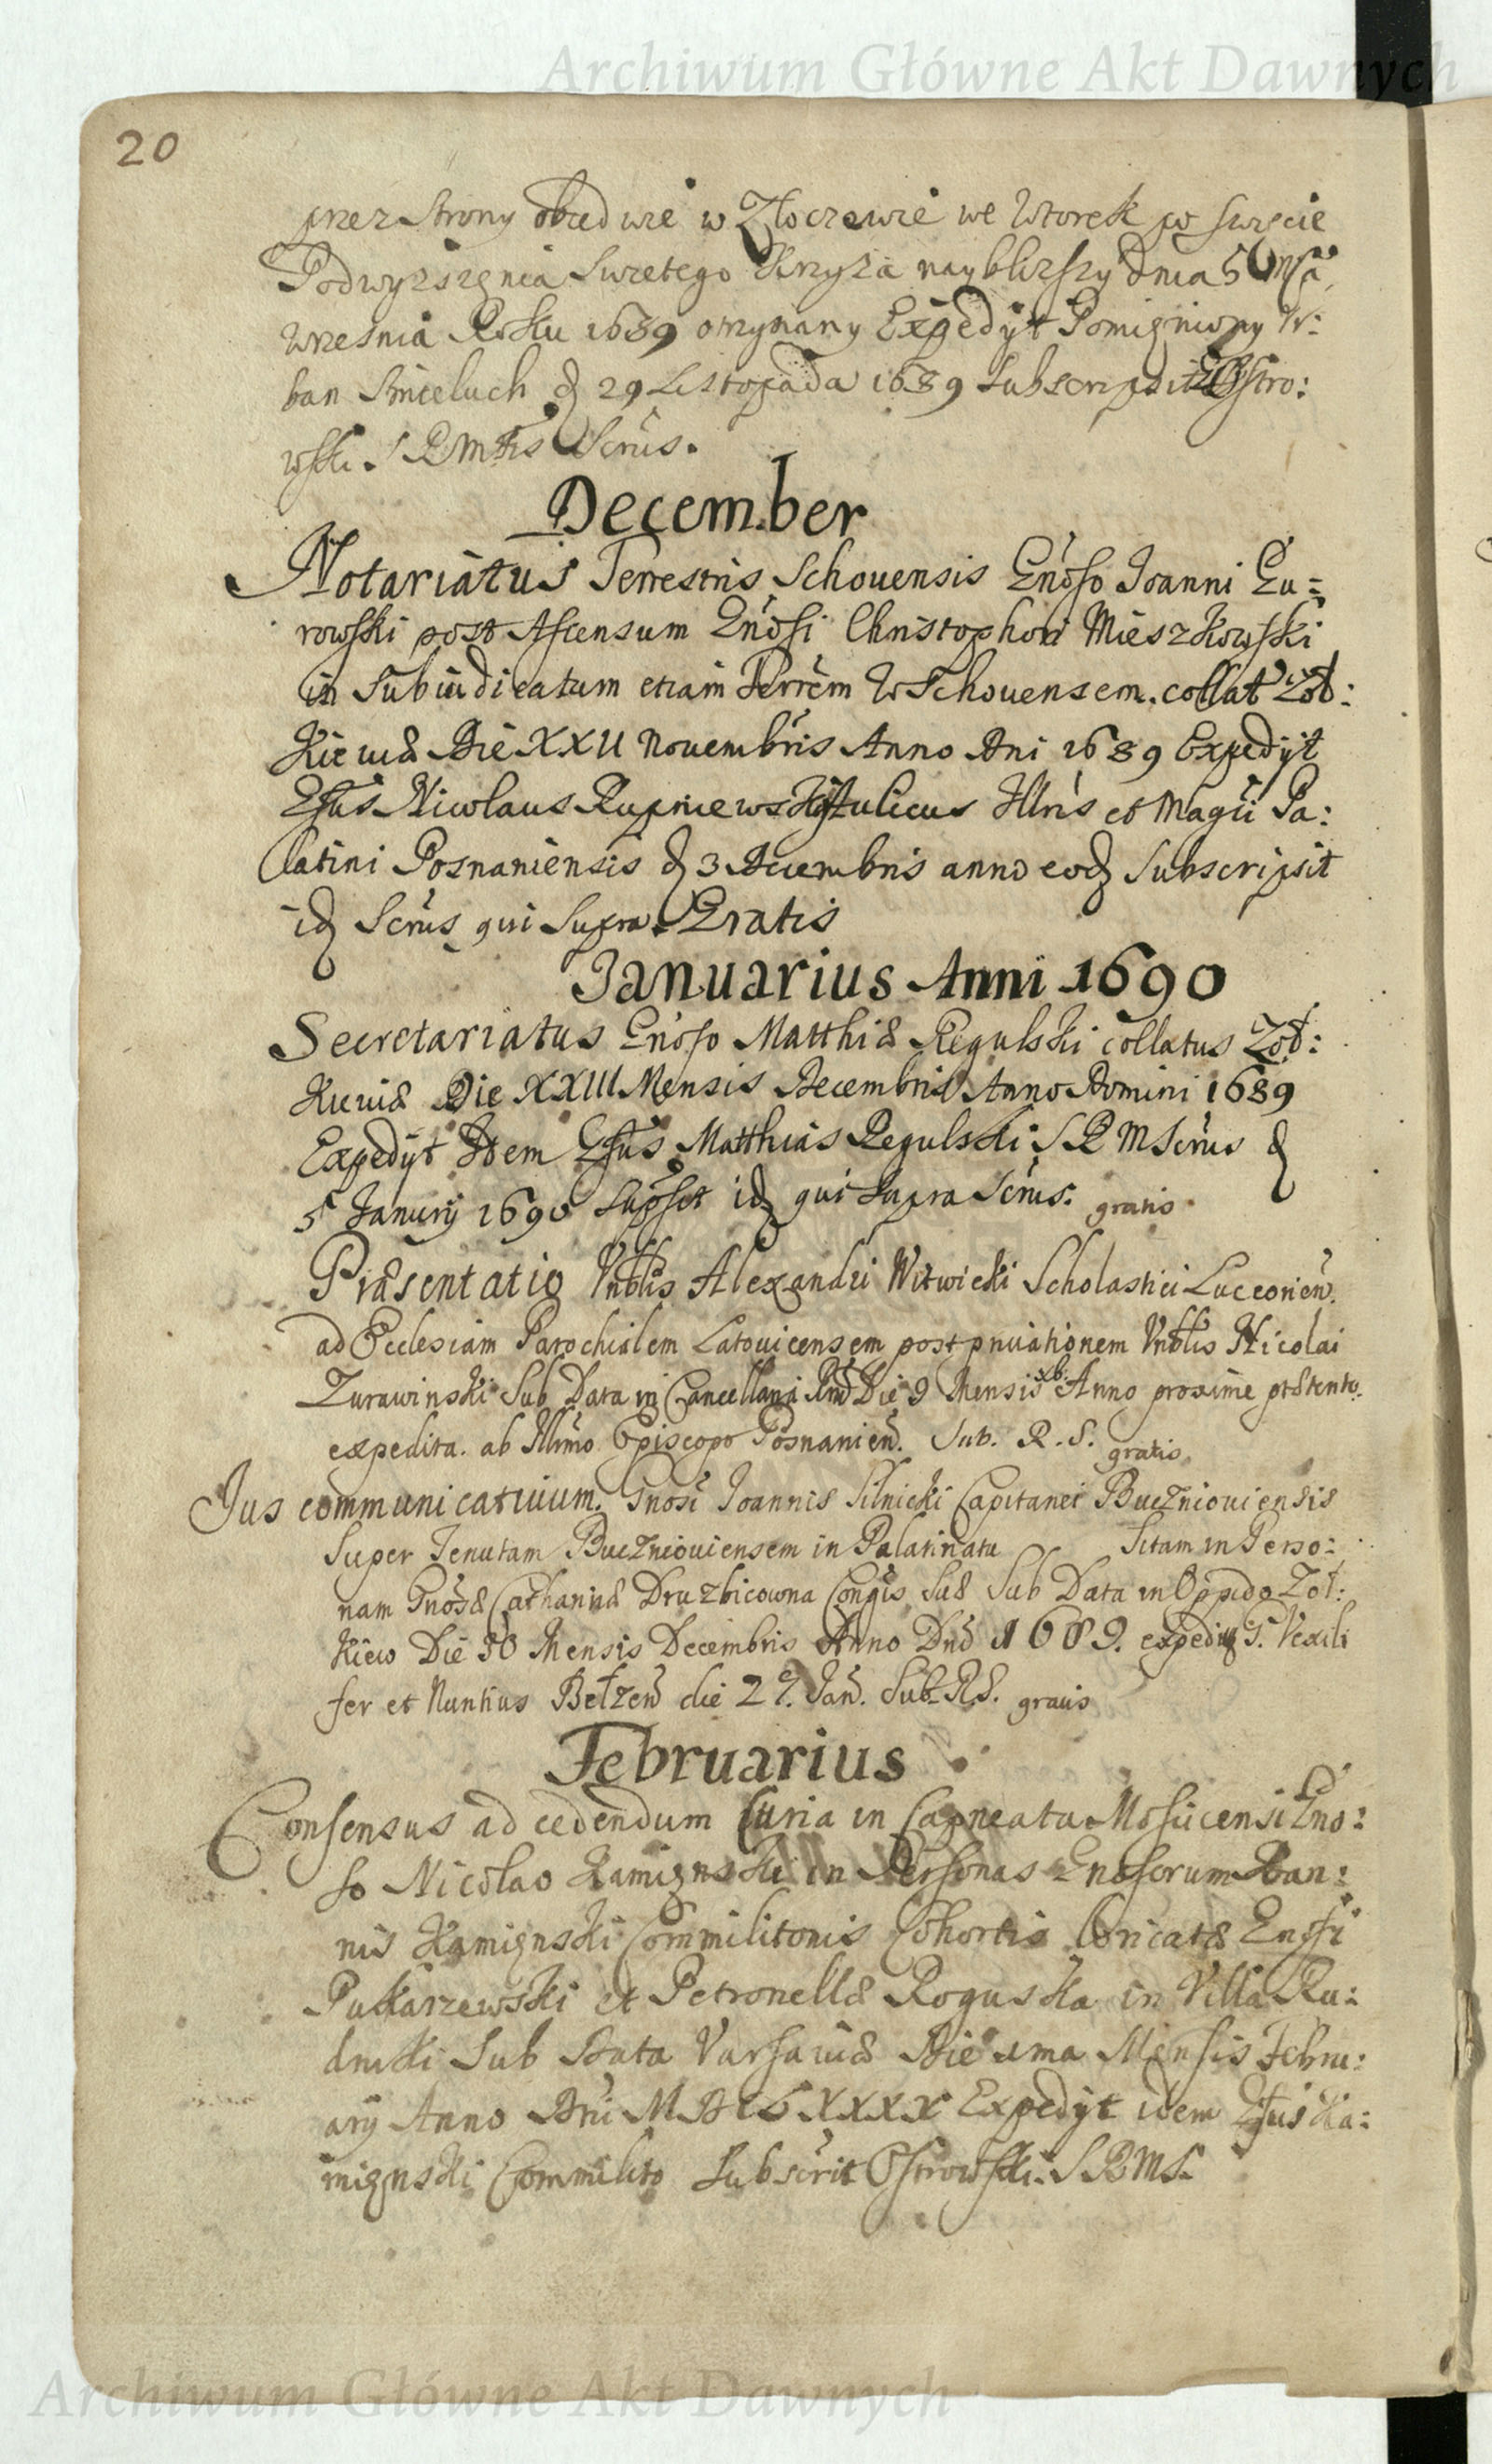 Archiwum Główne Akt Dawnych
20
przez Strony obiedwie w Złoczowie we Wtorek po swięcie
Podwyzszęnia Swietego Krzyża nayblizszy dnia 5
Wresnia Roku 1689 otrzymany Expedyt Pomięniony Ur:
ban Smieluch d 29 Listopada 1689 Subscripsit Ostro:
wski. S R Mtis Scrius.
December
Notariatus Terrestris Schovensis Gnoso Joanni Zu=
rowski post Ascensum Gnosi Christophori Mieszkowski
in Subiudicatum etiam Terrem WSchouensem. collat Zoł:
kieuiæ Die XXII Nouembris Anno Dni 1689 Expedijt
Gsus Nicolaus Rupniewski Aulicus Illris et Magci Pa:
latini Posnaniensis d 3 Decembris anno eod Subscripsit
id Scrius qui Supra. Gratis
Januarius Anni 1690
Secretariatus Gnoso Matthiæ Regulski collatus Zoł:
kieuiæ Die XXIII Mensis Decembris Anno Domini 1689
Expedijt Idem Gsus Matthias Regulski S R M Scrius d
5 Januarij 1690 Supsct id qui Supra Scrius. gratis
Præsentatio Vnblis Alexandri Witwicki Scholastici Luceorien.
ad Ecclesiam Parochialem Latouicensem post priuationem Vnblis Nicolai
Zurawinski Sub Data in Cancellaria Rni Die 9 Mensis xb: Anno proxime
expedita. ab Illimo Episcopo Posnanien. Sub. R. S. gratis
Jus communicatiuum. Gnosi Joannis Silnicki Capitanei Buczniouiensis
Super Tenutam Buczniouiensem in Palatinatu Sitam in Perso:
nam Gnosæ Catharinæ Druzbicowna Congis Suæ Sub Data in Oppido Zoł:
kiew Die 30 Mensis Decembris Anno Dni 1689. expediuit G. Vexili
fer et Nuntius Bełzen die 27. Jan. Sub. R.S. gratis
Februarius
Consensus ad cedendum Curia in Capneatu Mosticensi Gno:
so Nicolao Kamięnski in Personas Gnosorum Joan:
nis Kamięnski Commilitonis Cohortis loricatæ Gnosi
Pukarzewski et Petronellæ Roguska in Villa Ru:
dniki Sub Data Varsauiæ Die 1ma Mensis Febru:
arij Anno Dni M D C L XXXX Expedijt idem Gsus Ka:
mięnski Commilito Subscrit Ostrowski. S R M S.
Archiwum Główne Akt Dawnych